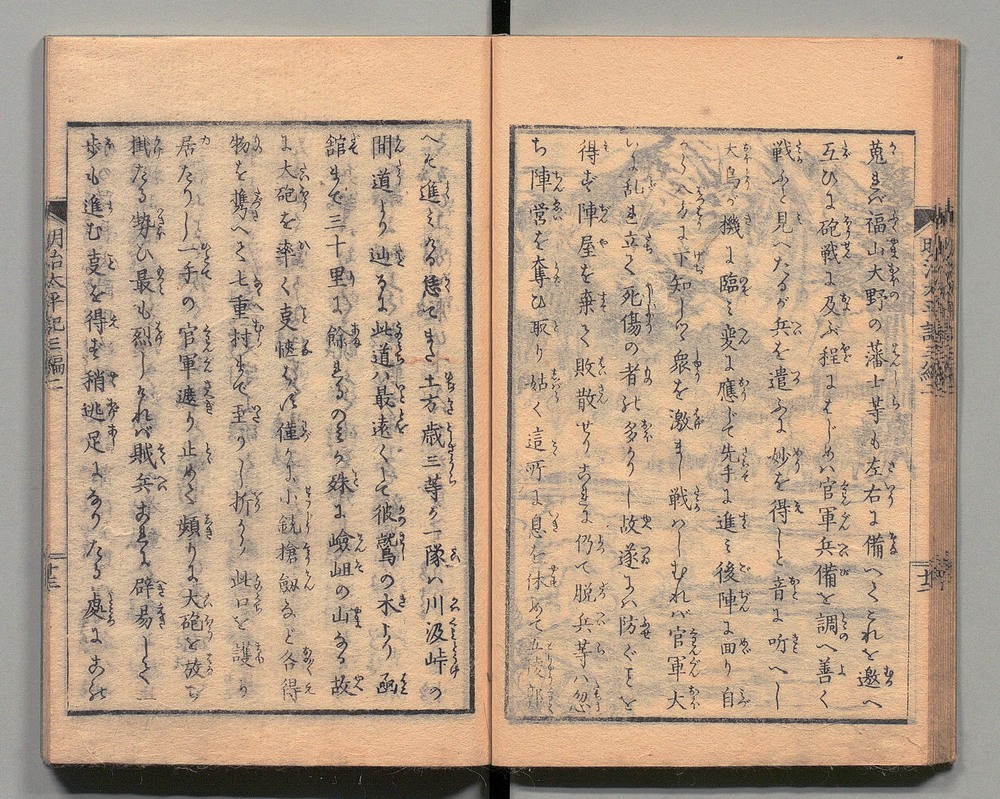 蒐まれバ福山大野の藩士等も左右に備へくこれを邀へ
互ひに砲戦に及ぶ程にはじめハ官軍兵備を調へ善く
戦ふと見へたるが兵を遣ふに妙を得しと音に听へし
大鳥が機に臨ミ変に應じて先手に進ミ後陣に回り自
下知しつ衆を激まし戦ハしむれバ官軍大
乱れ立て死傷の者も多かりし故遂にハ防ぐことを
得ず陣屋を棄て敗散せりこれに仍て脱兵等ハ忽
ち陣営を奪ひ取り姑く這所に息を休めて五稜郎
明治太平記三編二
へぞ進ミける偖てまた土方歳三等が一隊ハ川汲峠の
間道より辿るに此道ハ最遠くして彼鷲の木より函
舘まで三十里に餘れるのミか殊に嶮岨の山なる故
に大砲を率く叓愜ハず僅かに小銃搶劔など各得
物を携へて七重村まで至りし折から此口を護り
居たりし一手の官軍遮り止めて頻りに大砲を放ち
掛たる勢ひ最も烈しけれバ賊兵これに辟易して
歩も進む叓を得ず稍逃足になりたる處にあれ
明治太平記三編二
十三